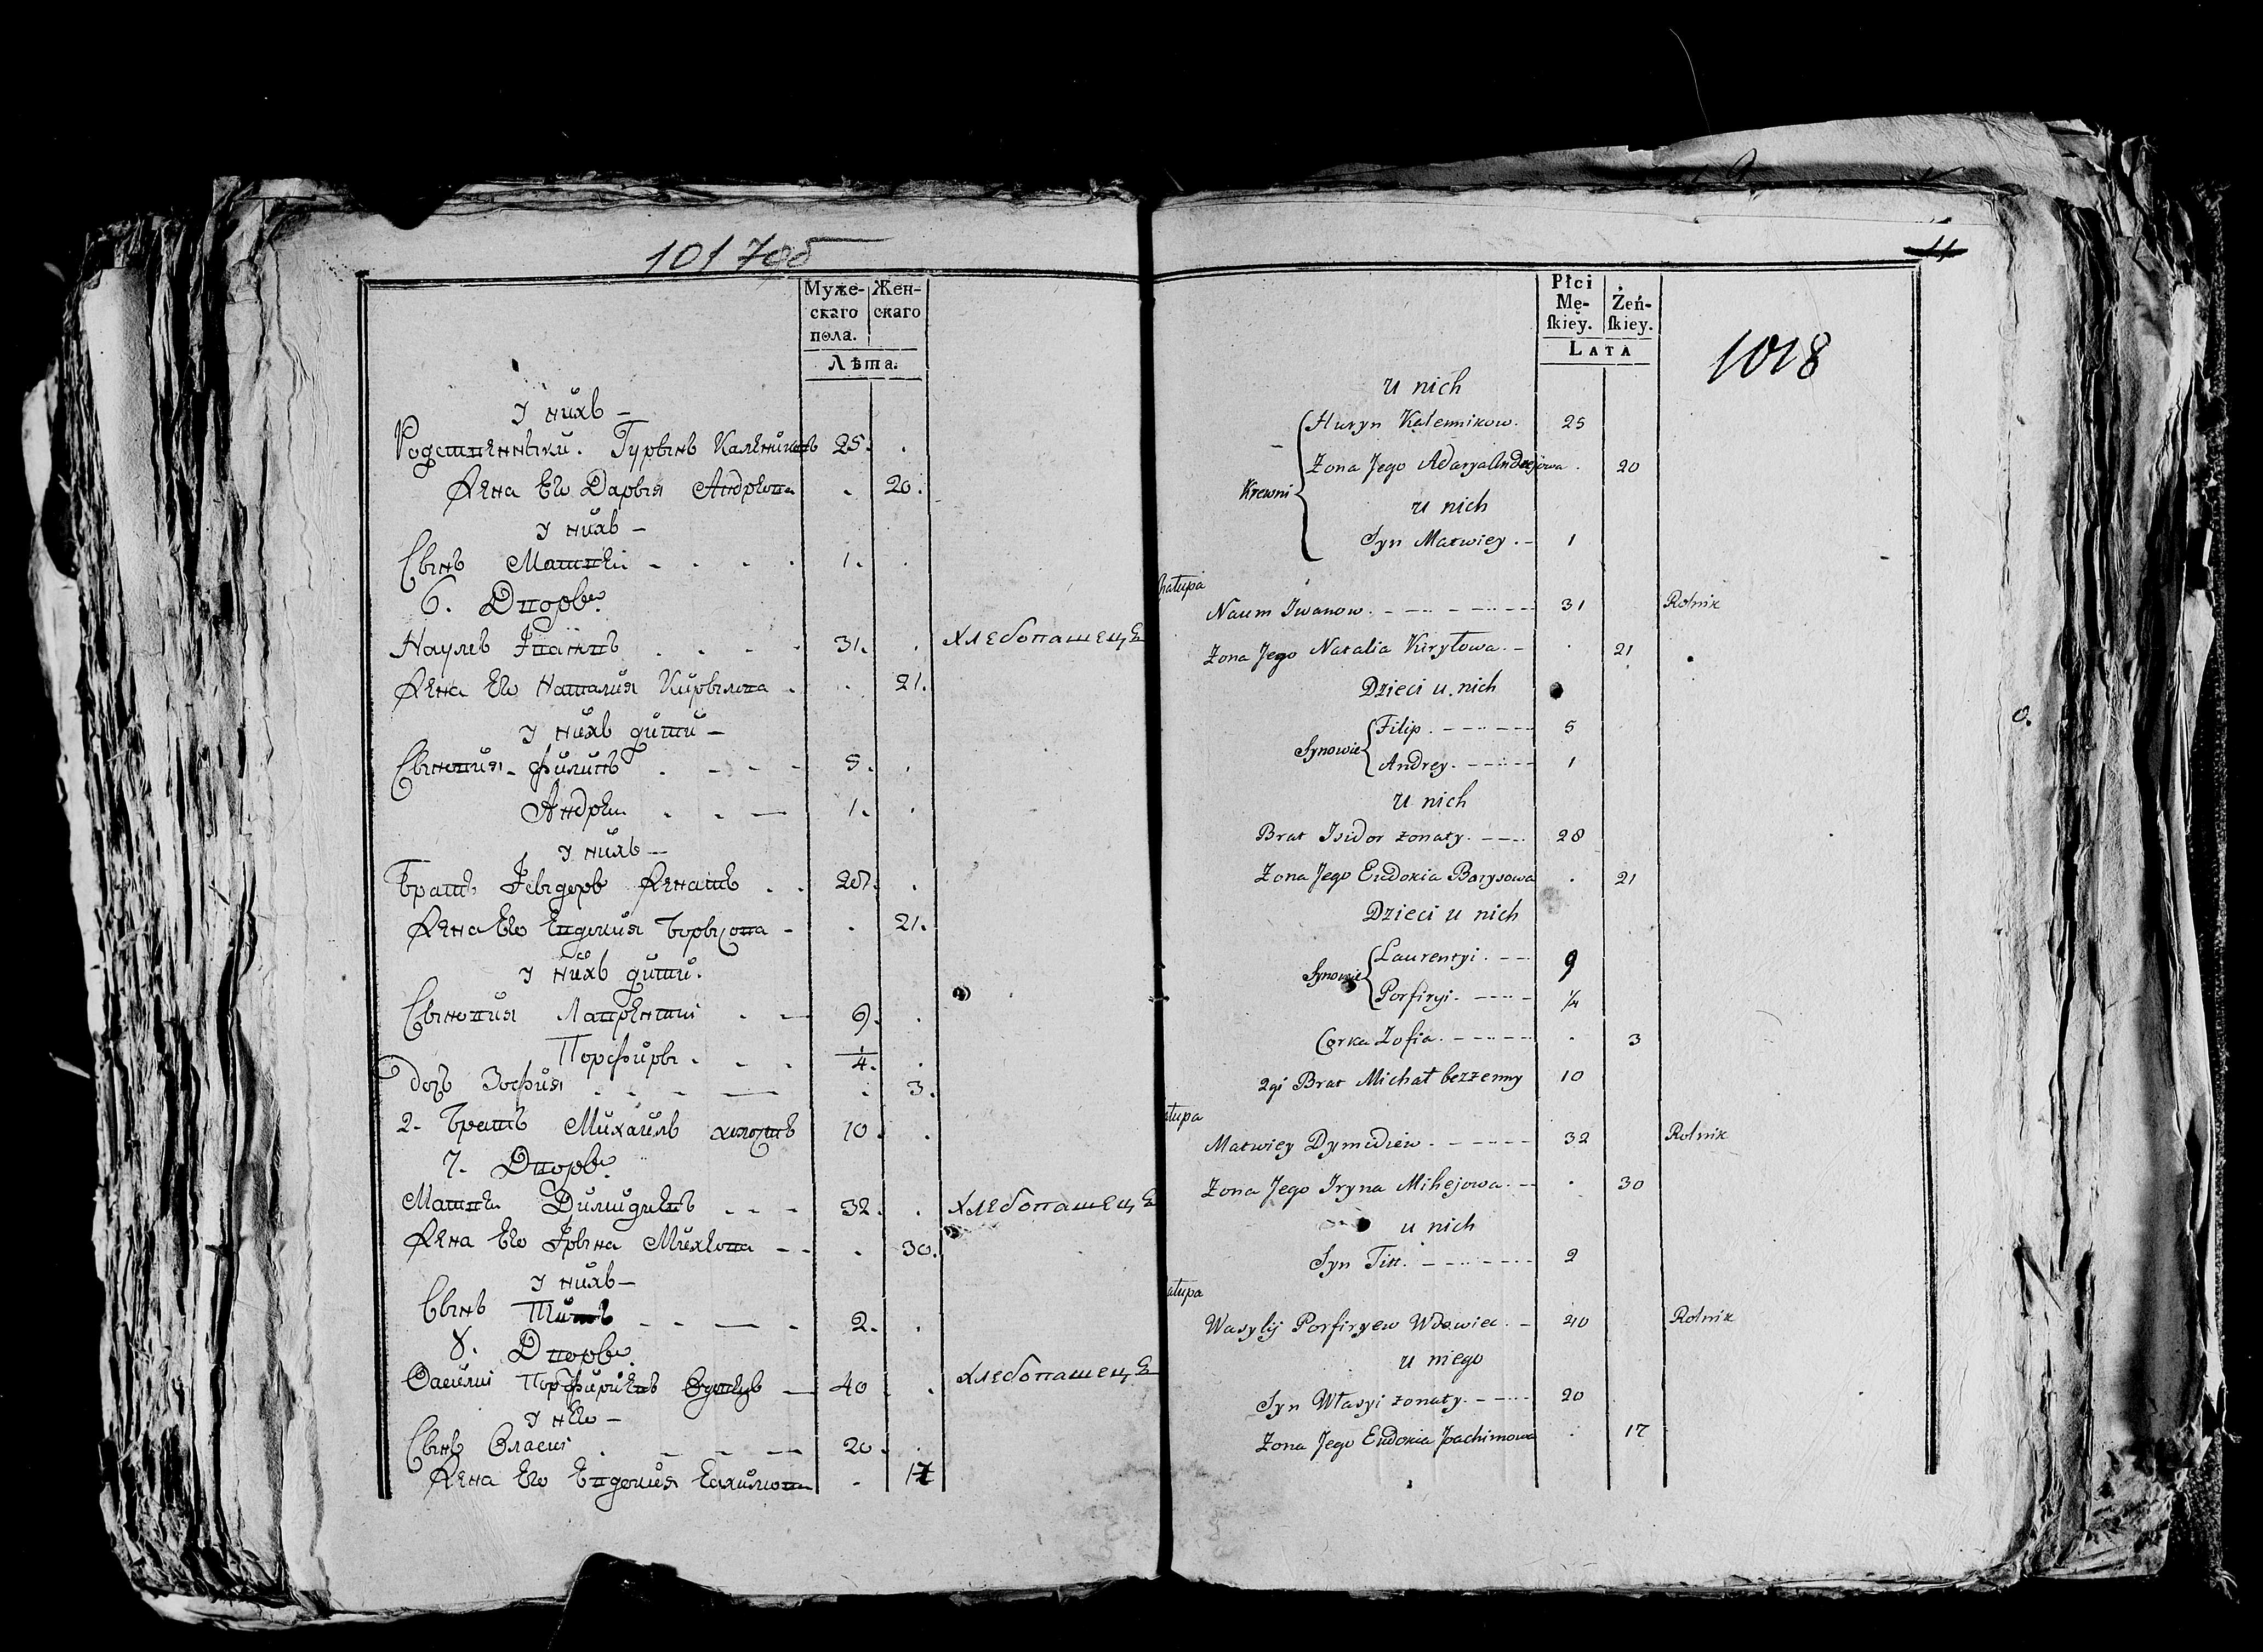 1017об
Муже-
скаго
пола.
Жен-
скаго
Лѣта.
У нихъ –
Родственники. Гурынъ Калениковъ 25. .
Жена Его Дарыя Андреева . 20.
У нихъ –
Сынъ Матвеи - . . . 1. .
6. Дворъ.
Наумъ Івановъ . . . . 31. . хлебопашецъ
Жена Его Наталия Кирылова . . 21.
У нихъ дити –
Сыновия - Филипъ . - - - 5. .
Андреи . . — 1. .
У нихъ —
Братъ Ісыдоръ Женатъ . . 28. .
Жена Его Евдокия Борысова - . 21.
У нихъ дити.
Сыновия Лаврентиі . — 9. .
Порфиры . . . 1/4. .
дочь Зофия . . - — . 3.
2. Братъ Михаилъ холостъ 10. .
7. Дворъ.
Матвеи Димидиевъ - - - 32. . хлебопашецъ
Жена Его Ірына Михеева - - . 30.
У нихъ —
Сынъ Титъ - - — . 2. .
8. Дворъ.
Васили Порфириевъ Вдовецъ — 40 . хлебопашецъ
У него —
Сынъ Власиі . - - - — 20. .
Жена Его Евдокия Еахимова . 17
11
Płci
Mę-
ſkiey.
Żeń-
ſkiey.
Lata
1018
u nich
Huryn Kalennikow. 25
Żona Jego Adarya Andrejowa . 20
Krewni
u nich
Syn Matwiey . – 1
hałupa
Naum Iwanow. 31 Rolnik
Żona Jego Natalia Kiryłowa. – . 21
Dzieci u nich
Synowie
Filip. 5
Andrey. 1
u nich
Brat Isidor żonaty. 28
Żona Jego Eudoxia Borysowa . 21
Dzieci u nich
Synowie
Laurentyi. 9
Porfiryi. 1/4
Corka Zofia. . 3
2gi Brat Michał bezżenny 10
ałupa
Matwiey Dymidiew. 32 Rolnik
Żona Jego Iryna Mihejowa. – . 30
u nich
Syn Titt. 2
ałupa
Wasylij Porfiryew Wdowiec. – 40 Rolnik
u niego
Syn Własyi żonaty. 20
Żona Jego Eudoxia Joachimowa . 17